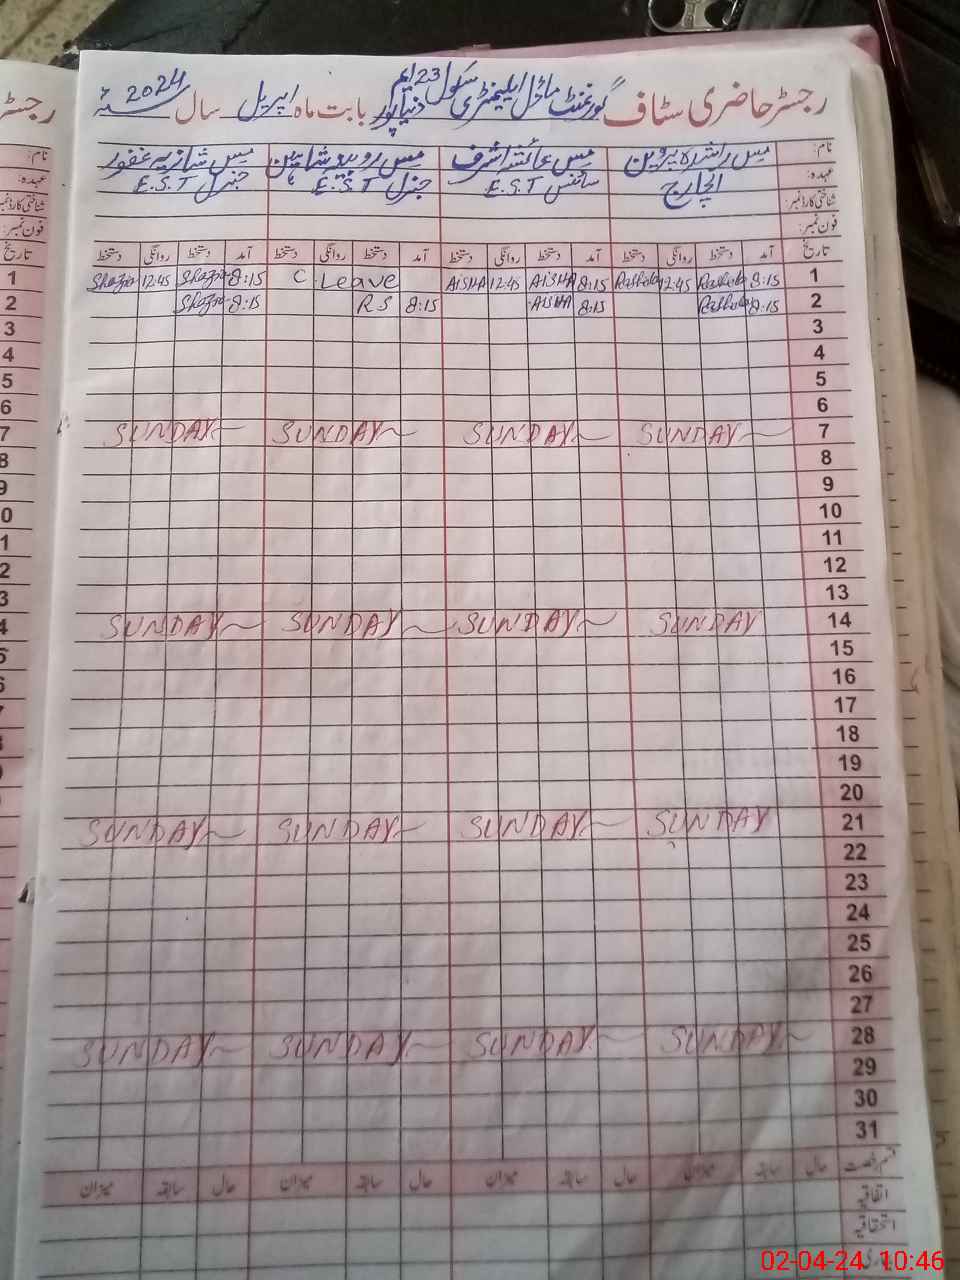 رجسٹر حاضری سٹاف گورنمنٹ ماڈل ایلیمنٹری سکول 23 ایم دنیاپور بابت ماہ اپریل سال 2024
نام: مس راشدہ پروین مس عائشہ اشرف مس روبینہ شاہین مس شازیہ غفور
عہدہ: انچارج سائنس E.S.T جنرل E.S.T جنرل E.S.T
شناختی کارڈ نمبر:
فون نمبر:
تاریخ آمد دستخط روانگی دستخط آمد دستخط روانگی دستخط آمد دستخط روانگی دستخط آمد دستخط روانگی دستخط
1 8:15 Rashida 12:45 Rashida 8:15 AiSHA 12:45 AiSHA C. Leave 8:15 Shazia 12:45 Shazia
2 8:15 Rashida 8:15 AiSHA 8:15 R S 8:15 Shazia
3
4
5
6
7 SUNDAY SUNDAY SUNDAY SUNDAY
8
9
10
11
12
13
14 SUNDAY SUNDAY SUNDAY SUNDAY
15
16
17
18
19
20
21 SUNDAY SUNDAY SUNDAY SUNDAY
22
23
24
25
26
27
28 SUNDAY SUNDAY SUNDAY SUNDAY
29
30
31
قسم رخصت حال سابقہ میزان حال سابقہ میزان حال سابقہ میزان حال سابقہ میزان
اتفاقیہ
استحقاقیہ
02-04-24 10:46